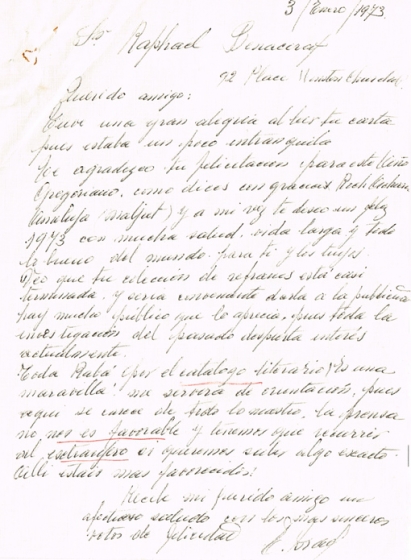 3/Enero/1973.
Sr. Raphael Benacerraf
22 Place Winston Churchill
Querido amigo:
Tuve una gran alegria al leer tu carta
pues estaba un poco intranquila
Te agradezco tu felicitacion para este Año
Gregoriano, como dices con gracia
y a mi vez te deseo un feliz
1973 con mucha salud, vida larga y todo
lo bueno del mundo para ti y los tuyos.
Veo que tu coleccion de refranes está casi
terminada y seria conveniente darla a la publicidad
hay mucho publico que lo aprecia, pues toda la
investigación del pasado despierta interés
actualmente.
por el catálogo literario! Es una
maravilla. me servirá de orientación, pues
aqui se carece de todo lo nuestro. la prensa
no nos es favorable y tenemos que recurrir
al extranjero si queremos saber algo exacto.
Alli estais mas favorecidos!
Recibe mi querido amigo un
afectuoso saludo con los mas sinceros
votos de felicidad